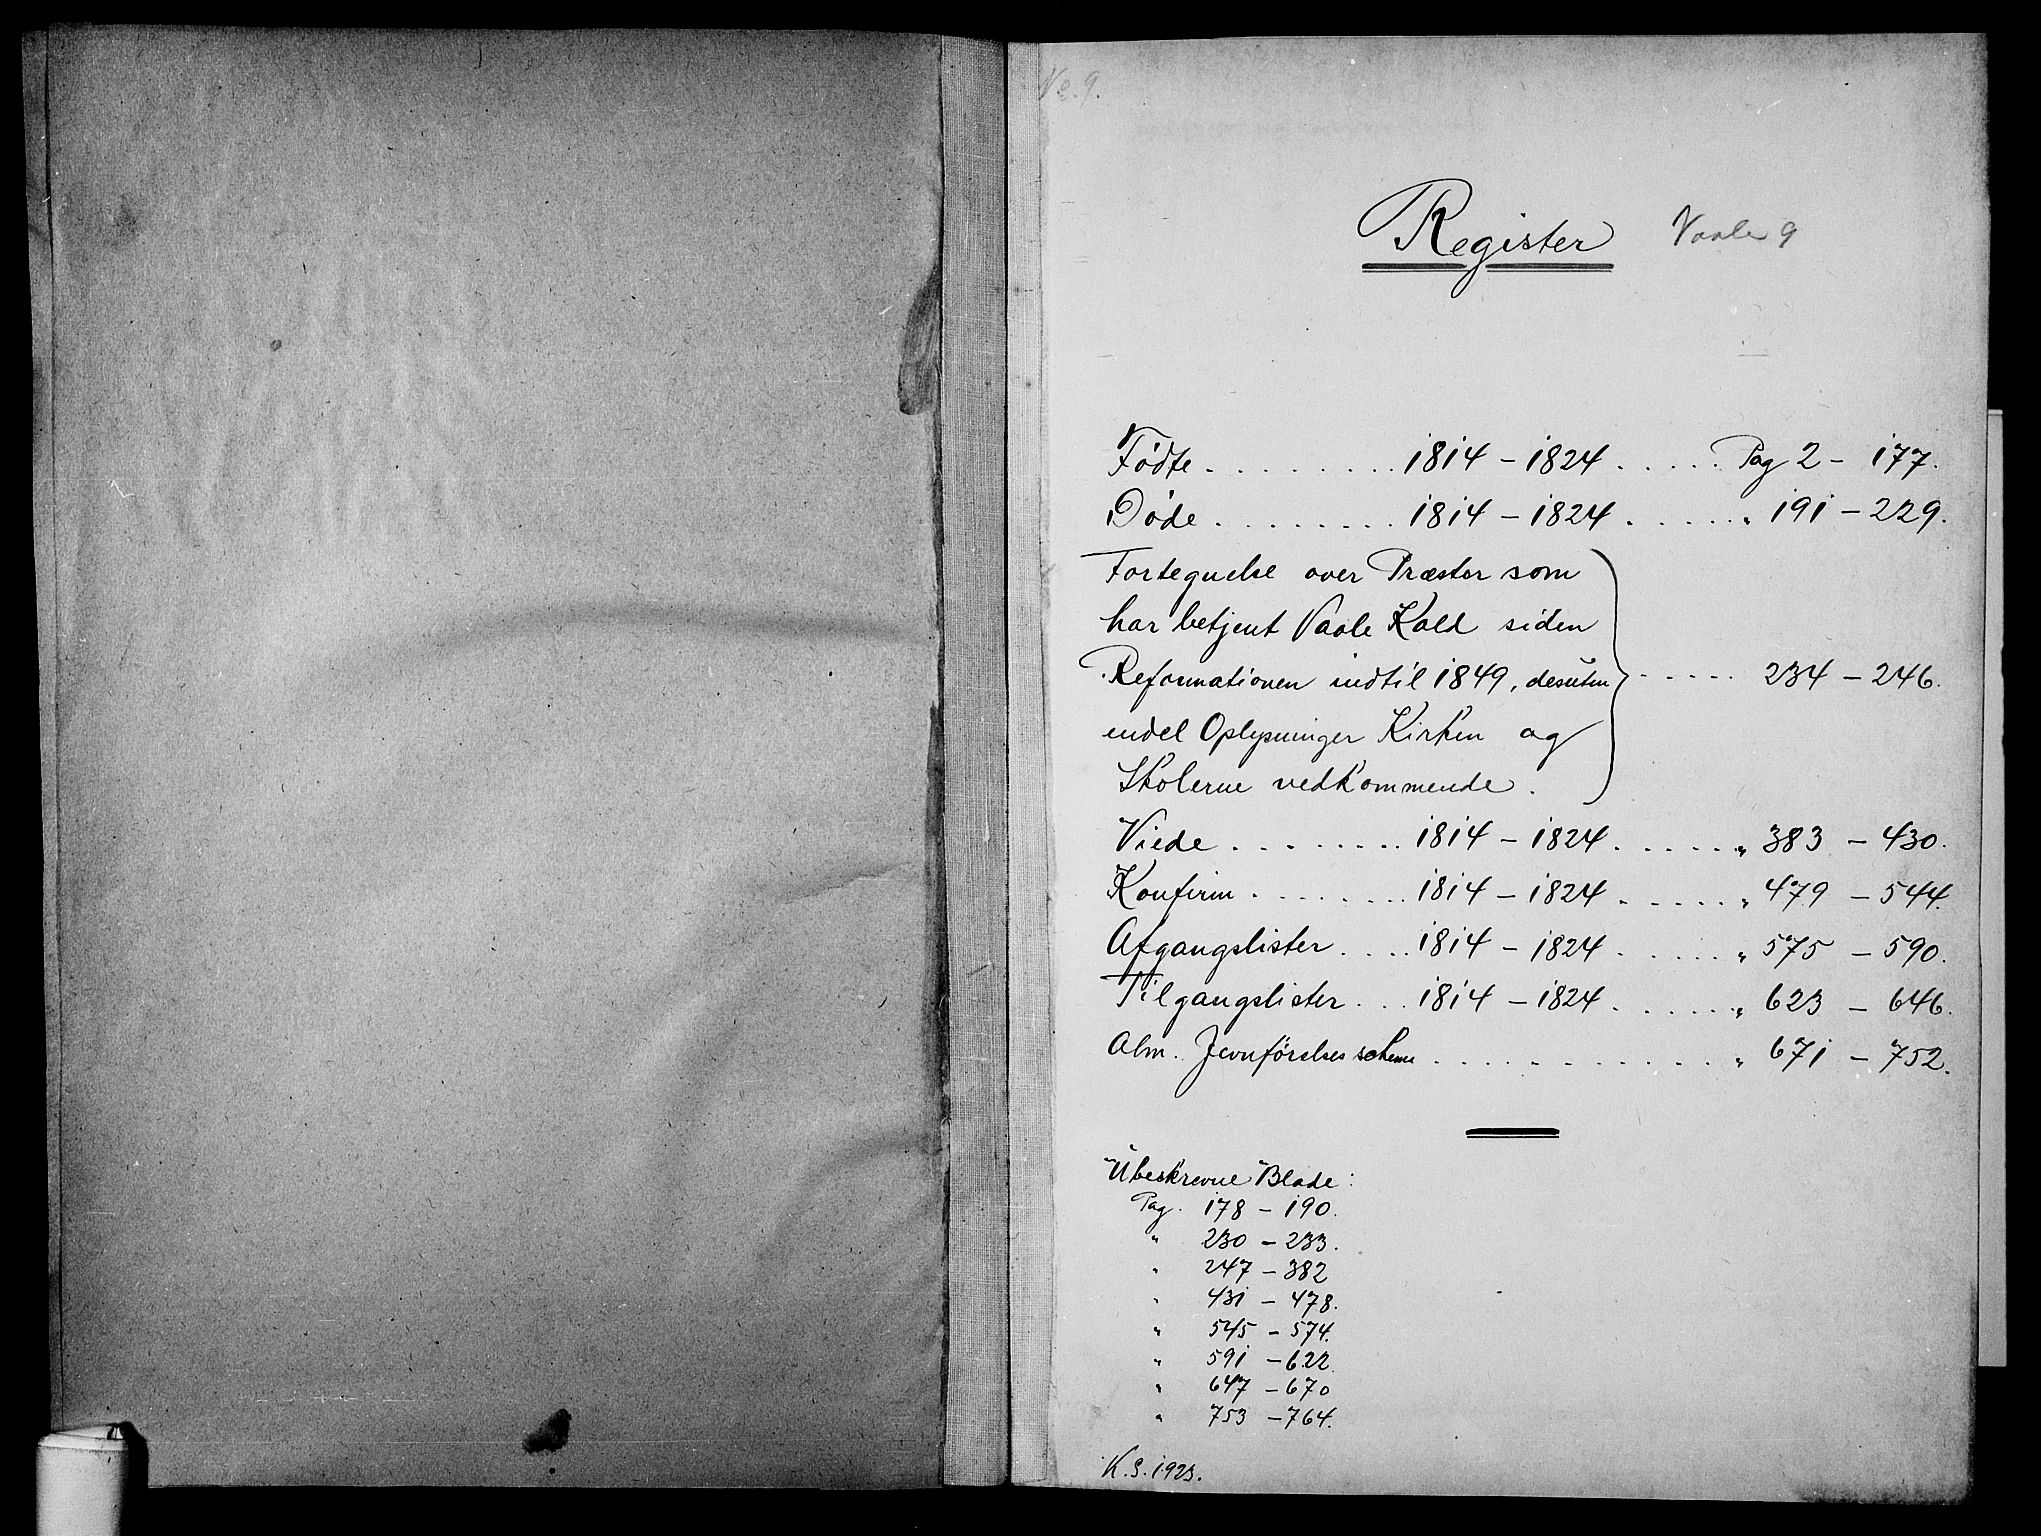 No. 9.
Register Vaale 9
Fødte . . . . . . . . . 1814 – 1824 . . . . . Pag 2 – 177.
Døde . . . . . . . . . 1814 – 1824 . . . . . „ 191 – 229.
Fortegnelse over Præster som
har betjent Vaale Kald siden
Reformationen indtil 1849, desuten . . . . . 234 – 246.
endel Oplysninger Kirken og
Skolerne vedkommende.
Viede . . . . . . . . . 1814 – 1824 . . . . . „ 383 – 430.
Konfirm . . . . . . . . 1814 – 1824 . . . . . „ 479 – 544.
Afgangslister . . . . 1814 – 1824 . . . . . „ 575 – 590.
Tilgangslister . . . 1814 – 1824 . . . . . „ 623 – 646.
Alm. Jevnførelses schema . . . . . . . . . . . „ 671 – 752.
Ubeskrevne Blade:
Pag. 178 – 190.
„ 230 – 233.
„ 247 – 382
„ 431 – 478.
„ 545 – 574.
„ 591 – 622
„ 647 – 670
„ 753 – 764.
K. S. 1923.